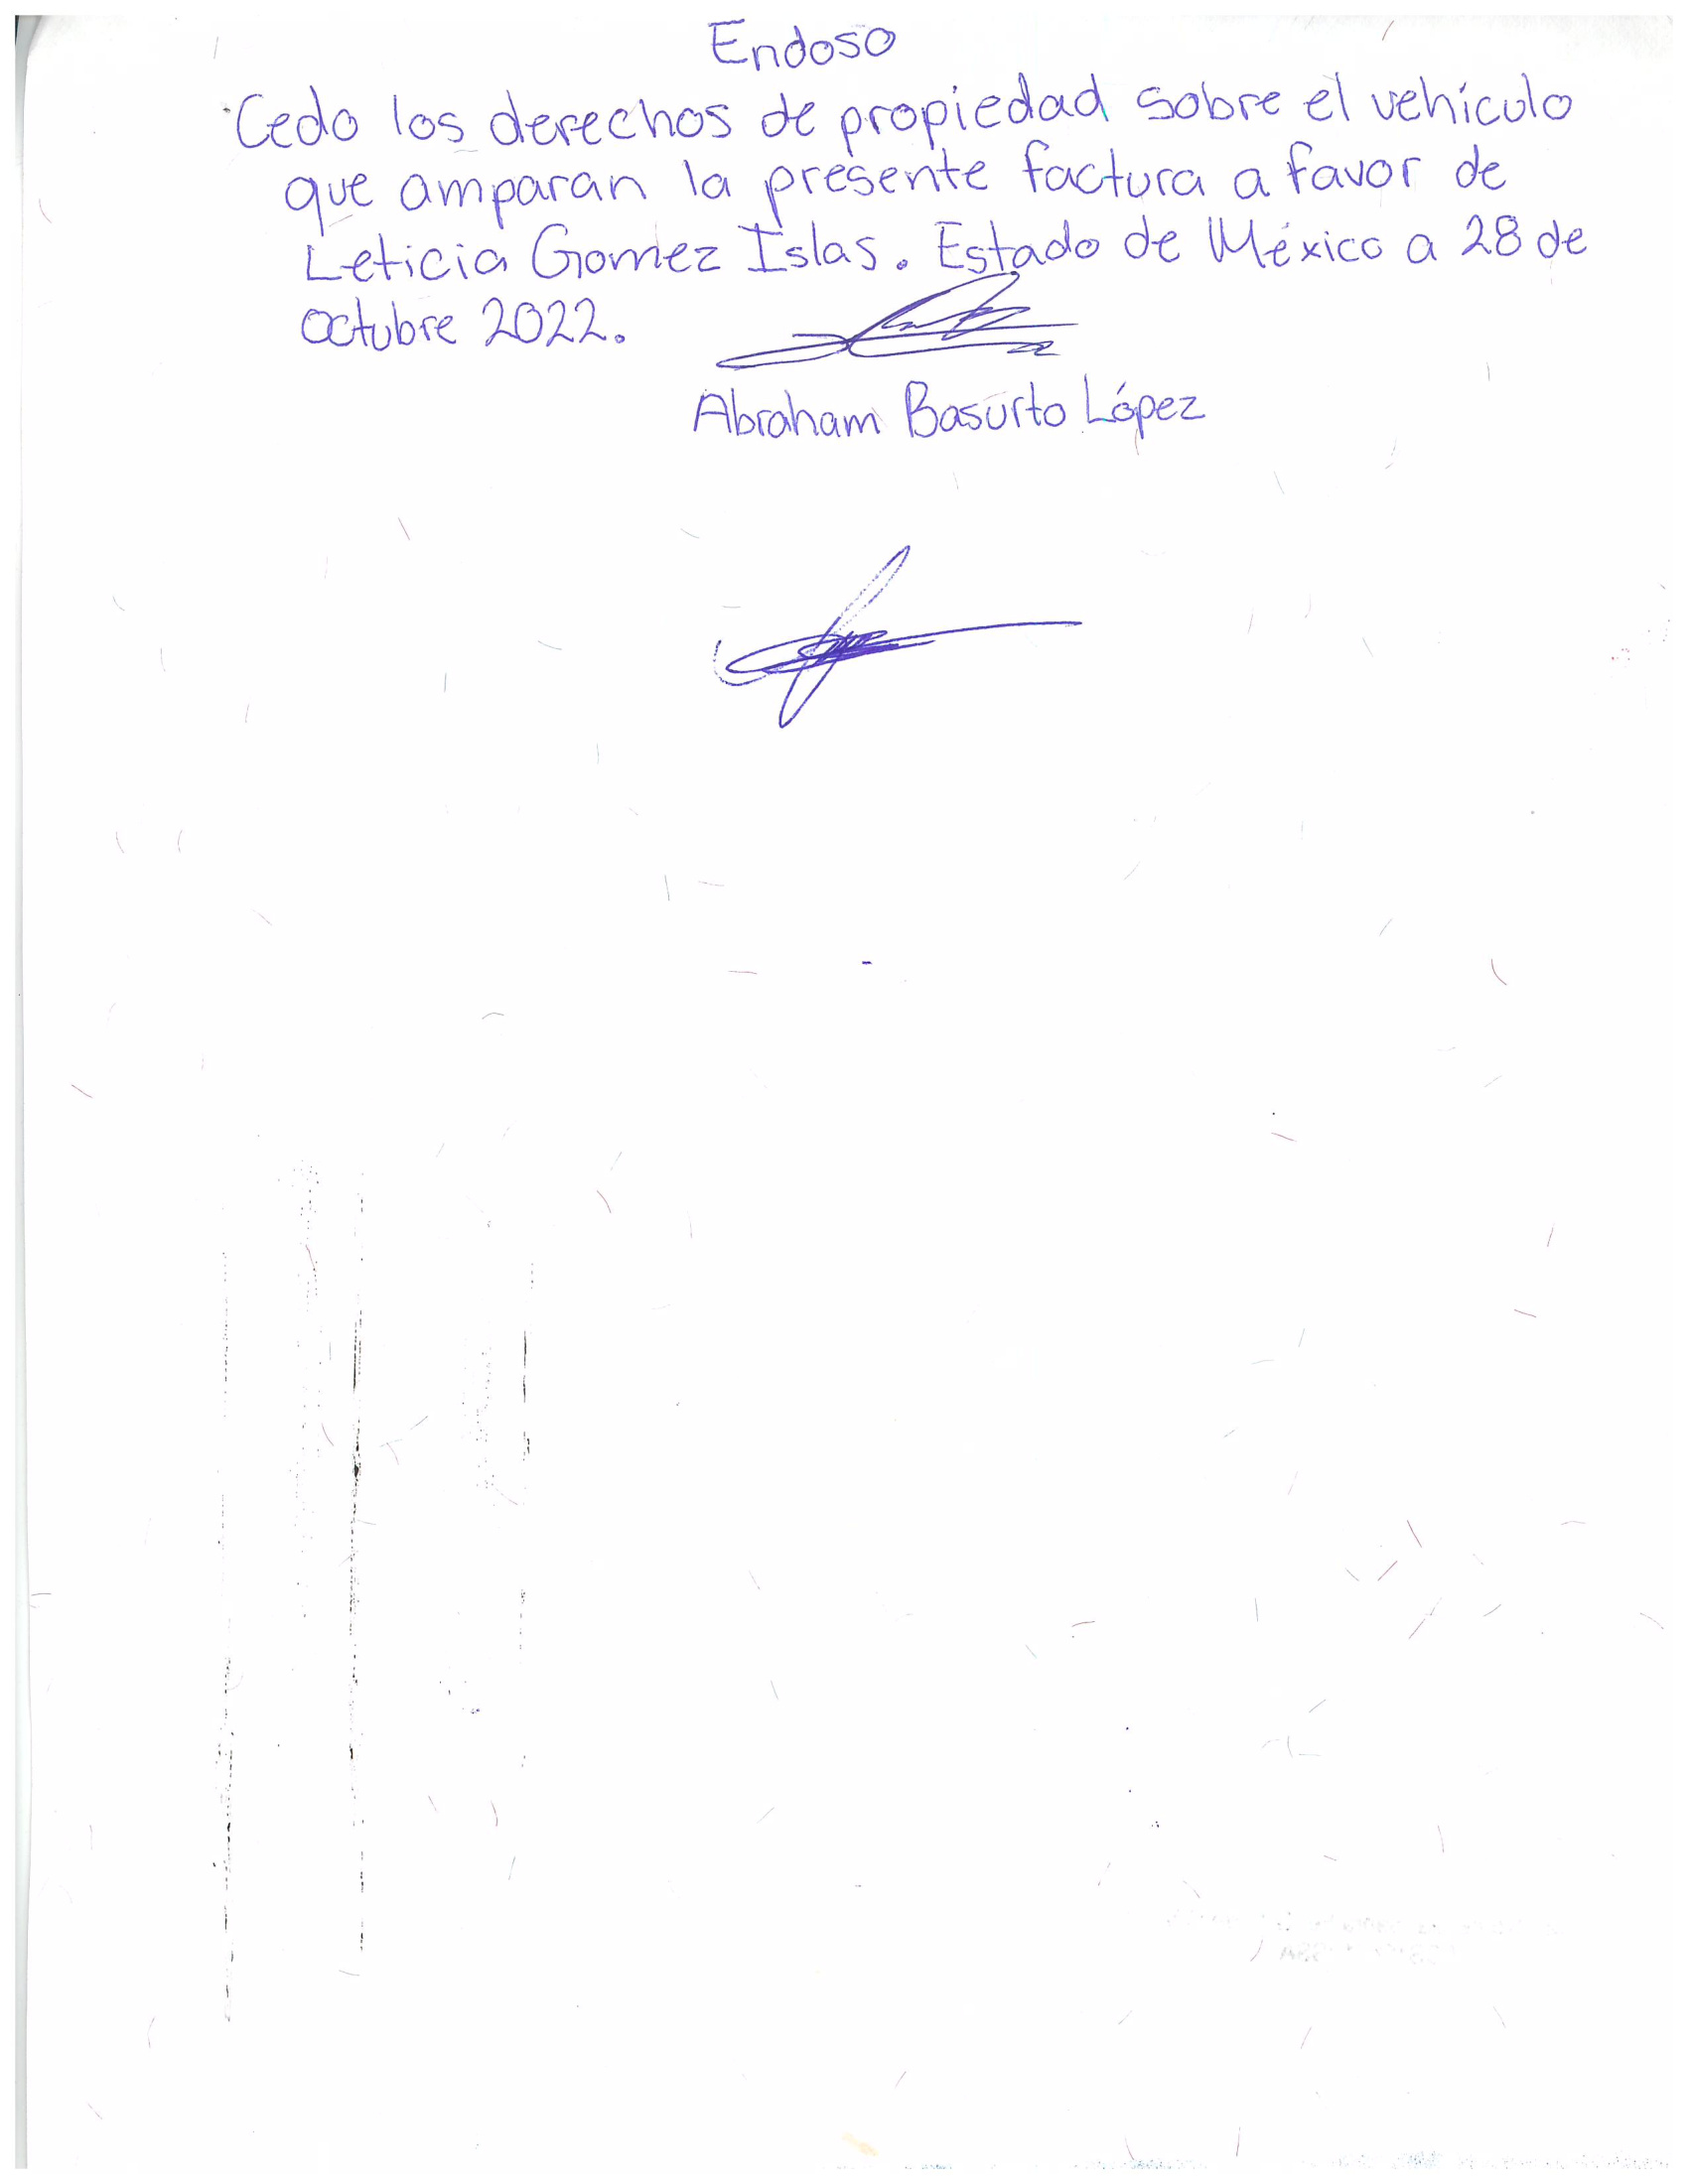 Endoso
Cedo los derechos de propiedad sobre el vehículo
que amparan la presente factura a favor de
Leticia Gomez Islas. Estado de México a 28 de
octubre 2022.
Abraham Basurto López